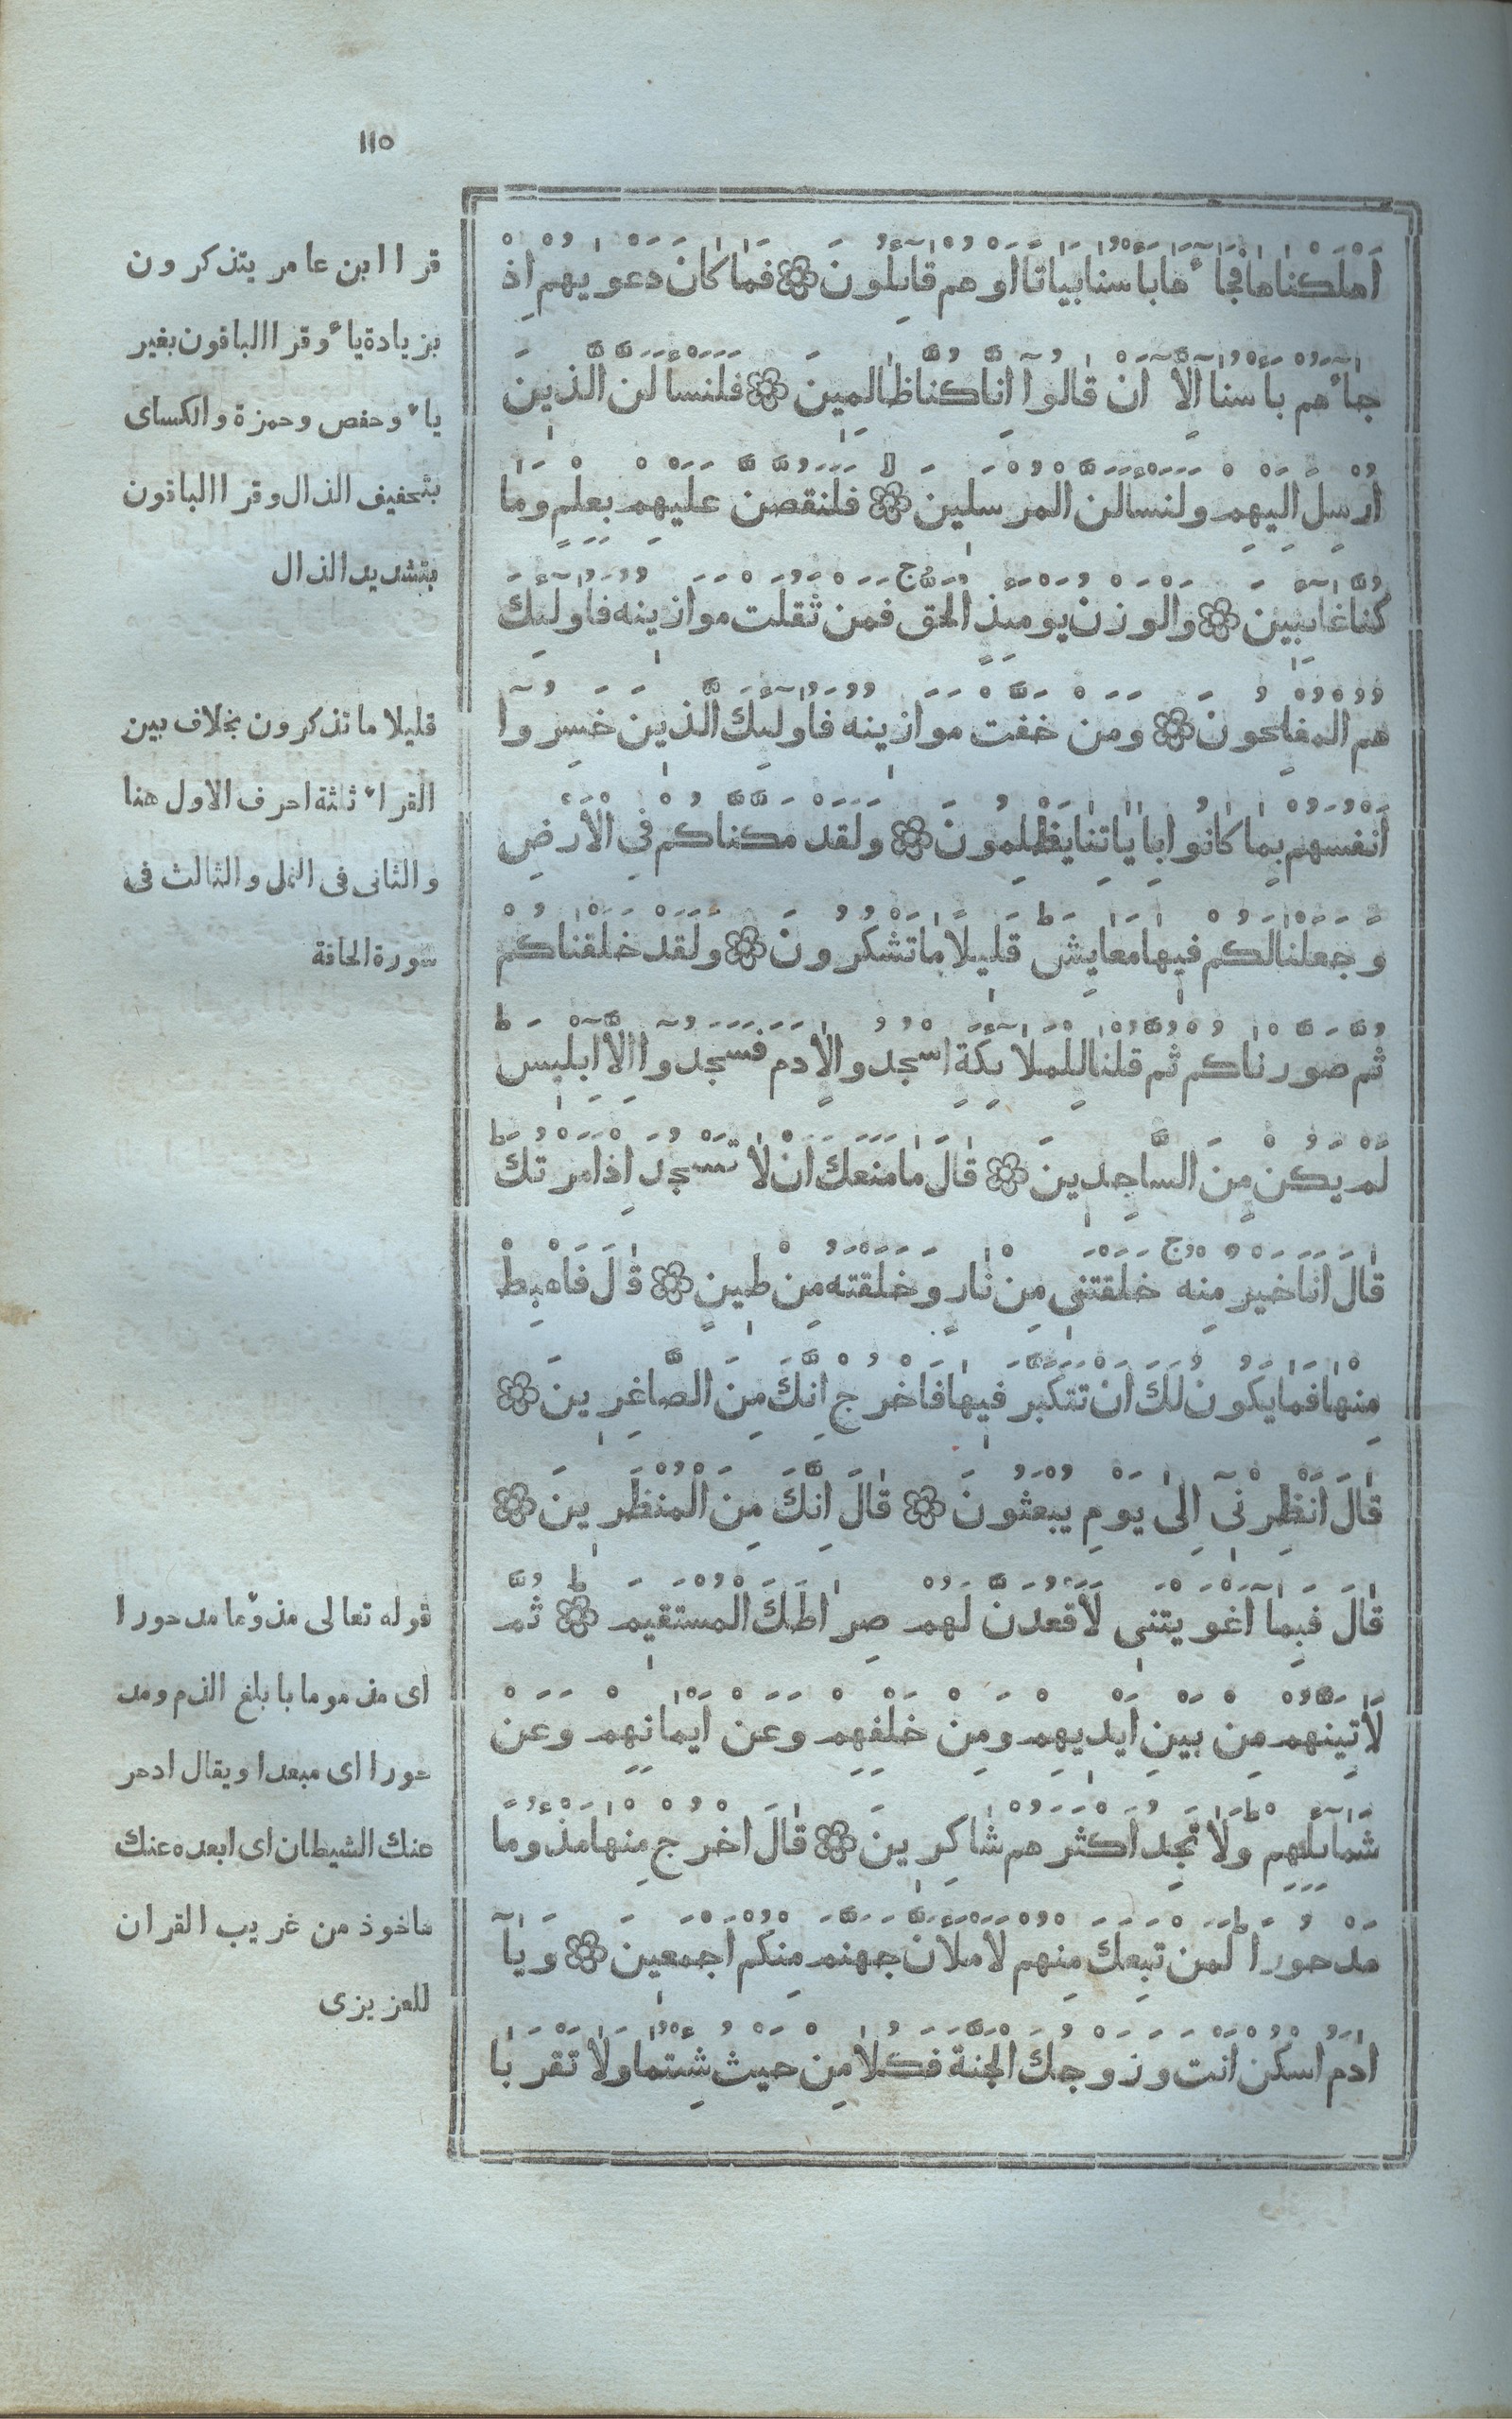 ١١٥
اَهْلَكْنٰاهٰا فَجٰاءَهٰا بَأْسُنٰا بَيٰاتًا اَوْ هُمْ قٰآئِلُونَ ۞ فَمٰا كٰانَ دَعْوٰيهُمْ اِذْ
جٰآءَهُمْ بَأْسُنٰا اِلَّآ اَنْ قٰالُوآ اِنَّا كُنَّا ظٰالِمِينَ ۞ فَلَنَسْأَلَنَّ الَّذِينَ
اُرْسِلَ اِلَيْهِمْ وَلَنَسْأَلَنَّ الْمُرْسَلِينَ لا ۞ فَلَنَقُصَّنَّ عَلَيْهِمْ بِعِلْمٍ وَمٰا
كُنَّا غٰآئِبِينَ ۞ وَالْوَزْنُ يَوْمَئِذٍ الْحَقُّ ج فَمَنْ ثَقُلَتْ مَوٰازِينُهُ فَاُولٰٓئِكَ
هُمُ الْمُفْلِحُونَ ۞ وَمَنْ خَفَّتْ مَوٰازِينُهُ فَاُولٰٓئِكَ الَّذِينَ خَسِرُوآ
اَنْفُسَهُمْ بِمٰا كٰانُوا بِاٰيٰاتِنٰا يَظْلِمُونَ ۞ وَلَقَدْ مَكَّنَّاكُمْ فِى الْاَرْضِ
وَجَعَلْنٰا لَكُمْ فِيهٰا مَعٰايِشَ ط قَلِيلًا مٰا تَشْكُرُونَ ۞ وَلَقَدْ خَلَقْنٰاكُمْ
ثُمَّ صَوَّرْنٰاكُمْ ثُمَّ قُلْنٰا لِلْمَلٰآئِكَةِ اسْجُدُوا لِاٰدَمَ فَسَجَدُوآ اِلَّآ اِبْلِيسَ ط
لَمْ يَكُنْ مِنَ السَّاجِدِينَ ۞ قٰالَ مٰا مَنَعَكَ اَنْ لٰا تَسْجُدَ اِذْ اَمَرْتُكَ ط
قٰالَ اَنَا خَيْرٌ مِنْهُ ج خَلَقْتَنِى مِنْ نٰارٍ وَخَلَقْتَهُ مِنْ طِينٍ ۞ قٰالَ فَاهْبِطْ
مِنْهٰا فَمٰا يَكُونُ لَكَ اَنْ تَتَكَبَّرَ فِيهٰا فَاخْرُجْ اِنَّكَ مِنَ الصَّاغِرِينَ ۞
قٰالَ اَنْظِرْنِىٓ اِلٰى يَوْمِ يُبْعَثُونَ ۞ قٰالَ اِنَّكَ مِنَ الْمُنْظَرِينَ ۞
قٰالَ فَبِمٰآ اَغْوَيْتَنِى لَاَقْعُدَنَّ لَهُمْ صِرٰاطَكَ الْمُسْتَقِيمَ ط ۞ ثُمَّ
لَاٰتِيَنَّهُمْ مِنْ بَيْنِ اَيْدِيهِمْ وَمِنْ خَلْفِهِمْ وَعَنْ اَيْمٰانِهِمْ وَعَنْ
شَمٰآئِلِهِمْ ط وَلٰا تَجِدُ اَكْثَرَهُمْ شٰاكِرِينَ ۞ قٰالَ اخْرُجْ مِنْهٰا مَذْؤُمًا
مَدْحُورًا ط لَمَنْ تَبِعَكَ مِنْهُمْ لَاَمْلَأَنَّ جَهَنَّمَ مِنْكُمْ اَجْمَعِينَ ۞ وَيٰآ
اٰدَمُ اسْكُنْ اَنْتَ وَزَوْجُكَ الْجَنَّةَ فَكُلٰا مِنْ حَيْثُ شِئْتُمٰا وَلٰا تَقْرَبٰا
قرا ابن عامر يتذكرون
بزيادة ياء وقرا الباقون بغير
ياء وحفص وحمزة والكساى
بتخفيف الذال وقرا الباقون
بتشديد الذال
قليلا ما تذكرون بخلاف بين
القراء ثلثة احرف الاول هنا
والثانى فى النمل والثالث فى
سورة الحاقة
قوله تعالى مذوما مدحورا
اى مذموما با بلغ الذم ومد
حورا اى مبعدا ويقال ادحر
عنك الشيطان اى ابعده عنك
ماخوذ من غريب القران
للعزيزى